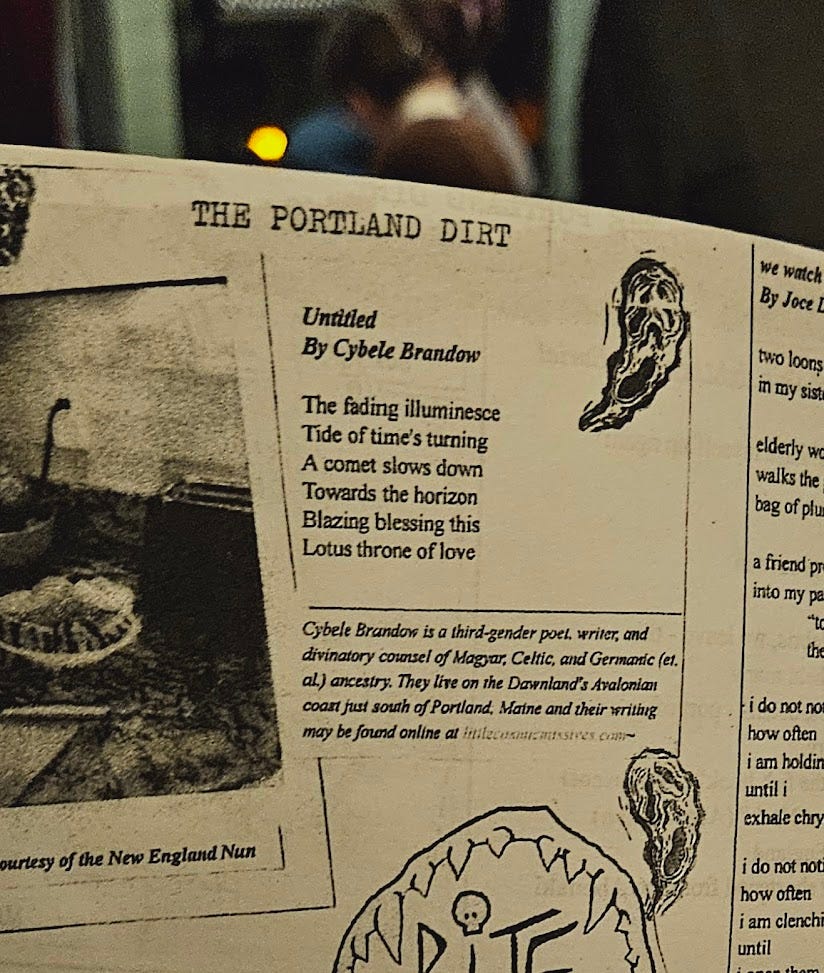 THE PORTLAND DIRT
Untitled
By Cybele Brandow
The fading illuminesce
Tide of time's turning
A comet slows down
Towards the horizon
Blazing blessing this
Lotus throne of love
Cybele Brandow is a third-gender poet, writer, and
divinatory counsel of Magyar, Celtic, and Germanic (et.
al.) ancestry. They live on the Dawnland's Avalonian
coast just south of Portland, Maine and their writing
may be found online at littlecosmicmissives.com~
ourtesy of the New England Nun
BiTE
we watch
By Joce
two loons
in my
elderly
walks the
bag of
a friend
into my
i do not
how often
i am
until i
exhale
i do not
how often
i am
until